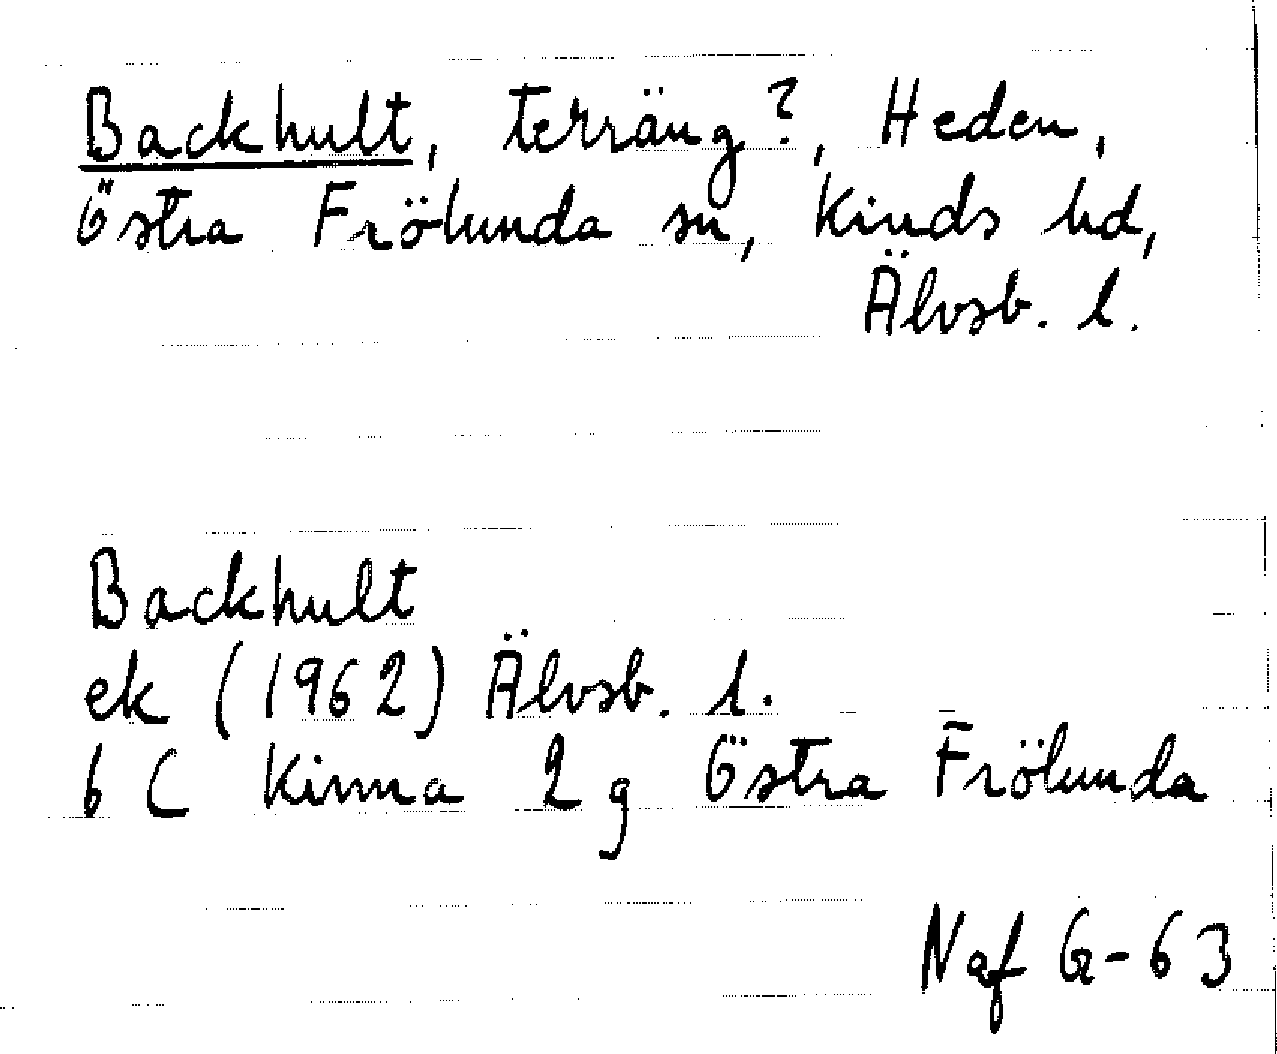 Backhult, terräng?, Heden,
Östra Frölunda sn, Kinds hd,
Älvsb. l.
Backhult
ek (1962) Älvsb. l.
6 C Kinna 2 g Östra Frölunda
Naf G-63